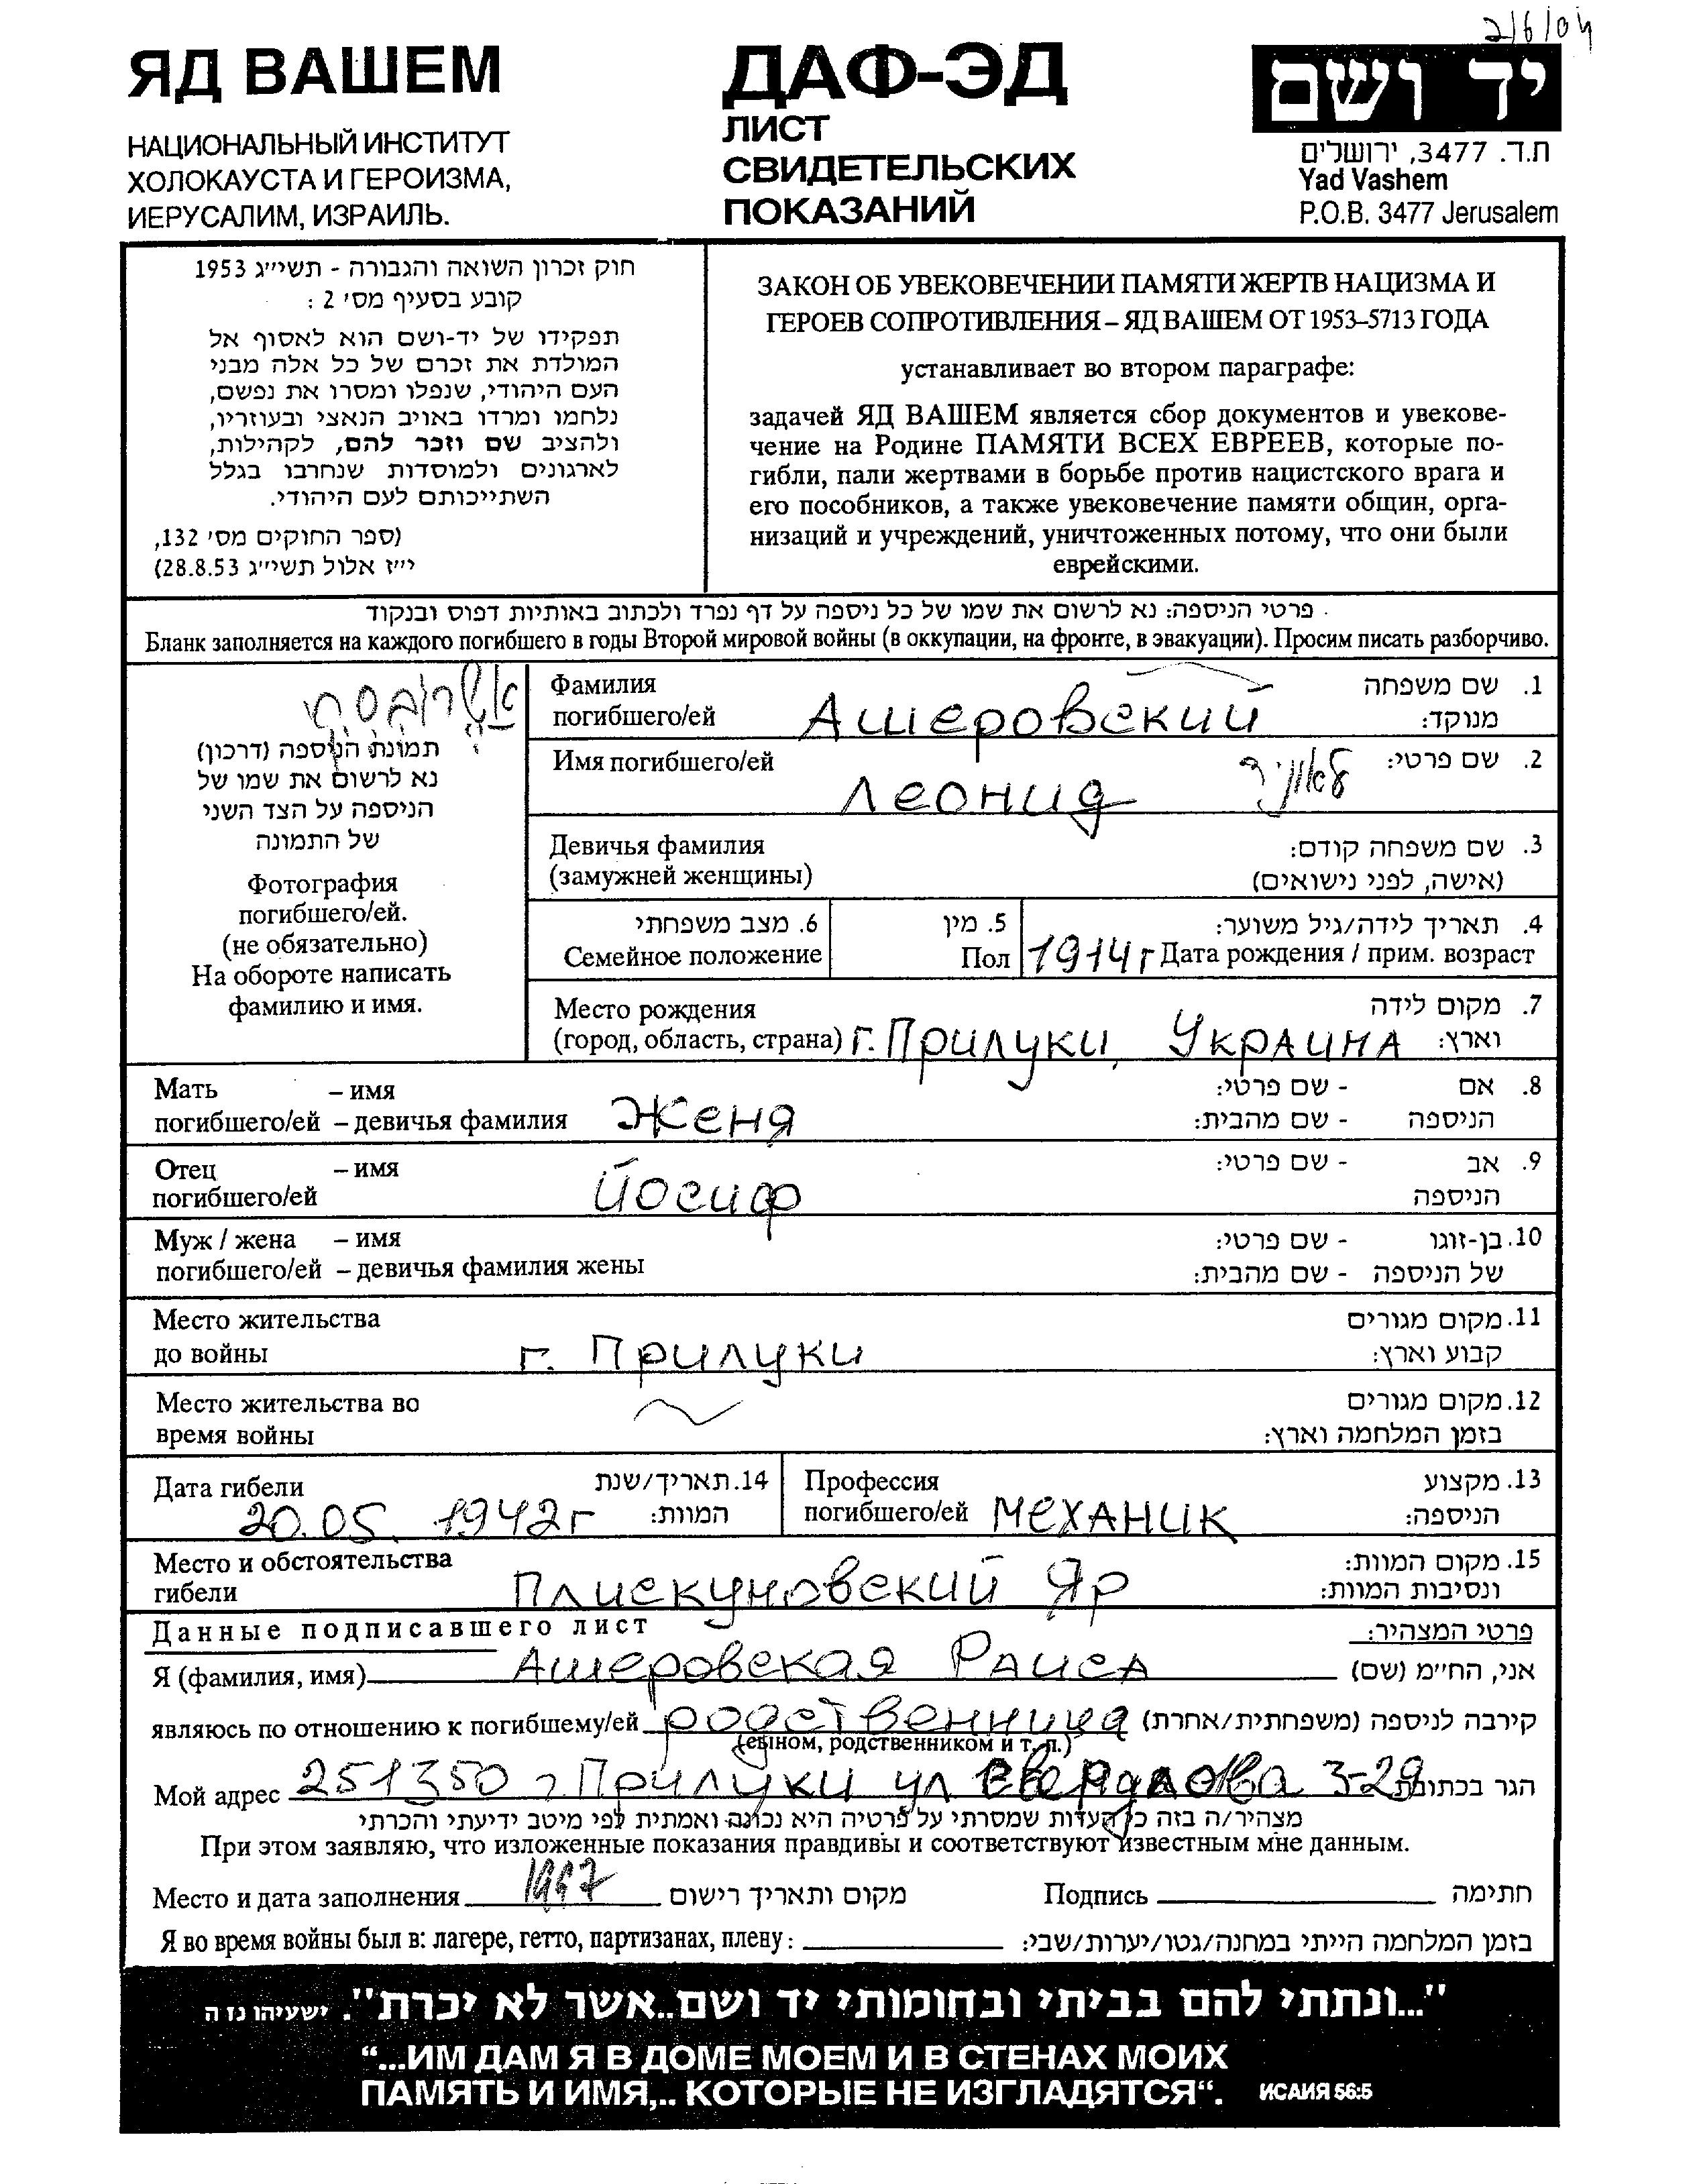 2/6/04
ЯД ВАШЕМ
НАЦИОНАЛЬНЫЙ ИНСТИТУТ
ХОЛОКАУСТА И ГЕРОИЗМА,
ИЕРУСАЛИМ, ИЗРАИЛЬ.
ДАФ-ЭД
ЛИСТ
СВИДЕТЕЛЬСКИХ
ПОКАЗАНИЙ
יד ושם
ת.ד. 3477, ירושלים
Yad Vashem
P.O.B. 3477 Jerusalem
חוק זכרון השואה והגבורה - תשי״ג 1953
קובע בסעיף מס׳ 2 :
תפקידו של יד-ושם הוא לאסוף אל
המולדת את זכרם של כל אלה מבני
העם היהודי, שנפלו ומסרו את נפשם,
נלחמו ומרדו באויב הנאצי ובעוזריו,
ולהציב שם וזכר להם, לקהילות,
לארגונים ולמוסדות שנחרבו בגלל
השתייכותם לעם היהודי.
(ספר החוקים מס׳ 132,
י״ז אלול תשי״ג 28.8.53)
ЗАКОН ОБ УВЕКОВЕЧЕНИИ ПАМЯТИ ЖЕРТВ НАЦИЗМА И
ГЕРОЕВ СОПРОТИВЛЕНИЯ – ЯД ВАШЕМ ОТ 1953–5713 ГОДА
устанавливает во втором параграфе:
задачей ЯД ВАШЕМ является сбор документов и увекове-
чение на Родине ПАМЯТИ ВСЕХ ЕВРЕЕВ, которые по-
гибли, пали жертвами в борьбе против нацистского врага и
его пособников, а также увековечение памяти общин, орга-
низаций и учреждений, уничтоженных потому, что они были
еврейскими.
פרטי הניספה: נא לרשום את שמו של כל ניספה על דף נפרד ולכתוב באותיות דפוס ובנקוד
Бланк заполняется на каждого погибшего в годы Второй мировой войны (в оккупации, на фронте, в эвакуации). Просим писать разборчиво.
אשרובסקי
תמונת הניספה (דרכון)
נא לרשום את שמו של
הניספה על הצד השני
של התמונה
Фотография
погибшего/ей.
(не обязательно)
На обороте написать
фамилию и имя.
Фамилия 1. שם משפחה
погибшего/ей Ашеровский מנוקד:
Имя погибшего/ей Леонид לאוניד 2. שם פרטי:
Девичья фамилия 3. שם משפחה קודם:
(замужней женщины) (אישה, לפני נישואים)
6. מצב משפחתי 5. מין 4. תאריך לידה/גיל משוער:
Семейное положение Пол 1914г Дата рождения / прим. возраст
Место рождения 7. מקום לידה
(город, область, страна) г. Прилуки, Украина וארץ:
Мать – имя 8. אם - שם פרטי:
погибшего/ей – девичья фамилия Женя הניספה - שם מהבית:
Отец – имя 9. אב - שם פרטי:
погибшего/ей Йосиф הניספה
Муж / жена – имя 10. בן-זוגו - שם פרטי:
погибшего/ей – девичья фамилия жены של הניספה - שם מהבית:
Место жительства 11. מקום מגורים
до войны г. Прилуки קבוע וארץ:
Место жительства во 12. מקום מגורים
время войны בזמן המלחמה וארץ:
Дата гибели 14. תאריך/שנת Профессия 13. מקצוע
20.05. 1942г המוות: погибшего/ей механик הניספה:
Место и обстоятельства 15. מקום המוות:
гибели Плискуновский Яр ונסיבות המוות:
Данные подписавшего лист פרטי המצהיר:
Я (фамилия, имя) Ашеровская Раиса אני, החי״מ (שם)
являюсь по отношению к погибшему/ей родственница קירבה לניספה (משפחתית/אחרת)
(сыном, родственником и т.п.)
Мой адрес 251350 г. Прилуки ул Свердлова 3-29 הגר בכתובת
מצהיר/ה בזה כי העדות שמסרתי על פרטיה היא נכונה ואמתית לפי מיטב ידיעתי והכרתי
При этом заявляю, что изложенные показания правдивы и соответствуют известным мне данным.
Место и дата заполнения 1997 מקום ותאריך רישום Подпись חתימה
Я во время войны был в: лагере, гетто, партизанах, плену: בזמן המלחמה הייתי במחנה/גטו/יערות/שבי:
"...ונתתי להם בביתי ובחומותי יד ושם..אשר לא יכרת". ישעיהו נז ה
“...ИМ ДАМ Я В ДОМЕ МОЕМ И В СТЕНАХ МОИХ
ПАМЯТЬ И ИМЯ,.. КОТОРЫЕ НЕ ИЗГЛАДЯТСЯ“. ИСАИЯ 56:5